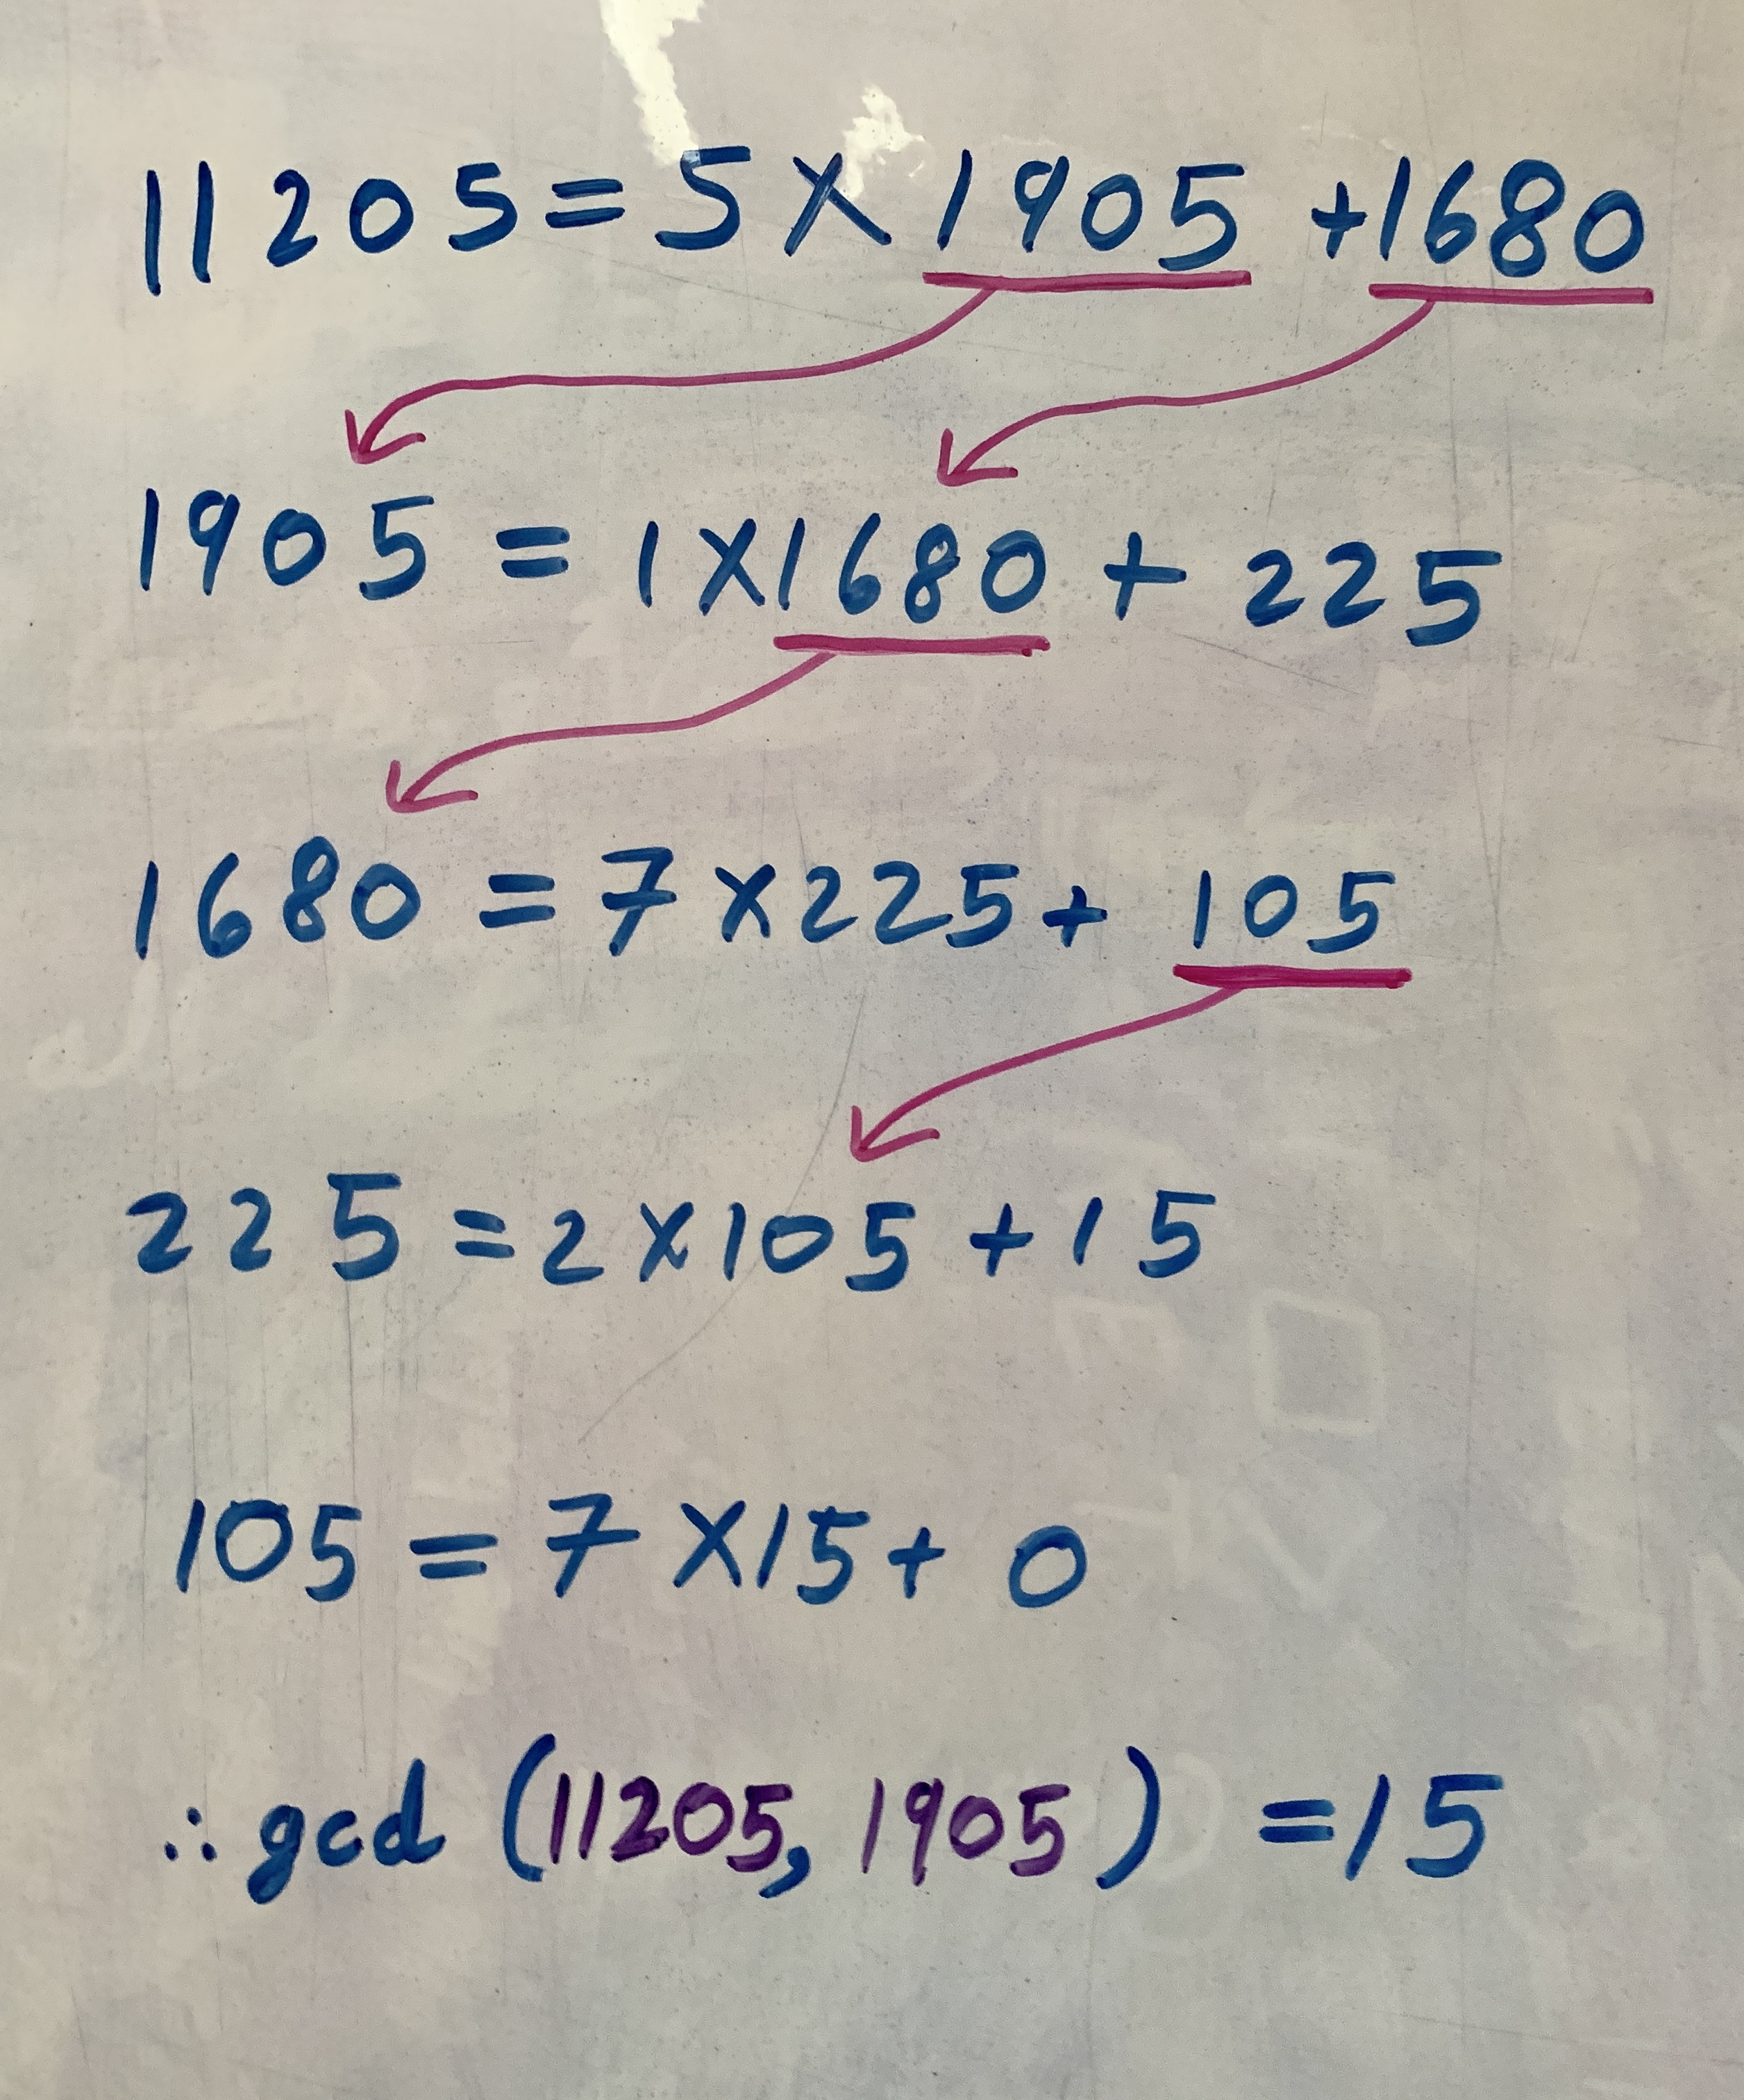 11205 = 5 × 1905 + 1680
1905 = 1 × 1680 + 225
1680 = 7 × 225 + 105
225 = 2 × 105 + 15
105 = 7 × 15 + 0
∴ gcd (11205, 1905) = 15